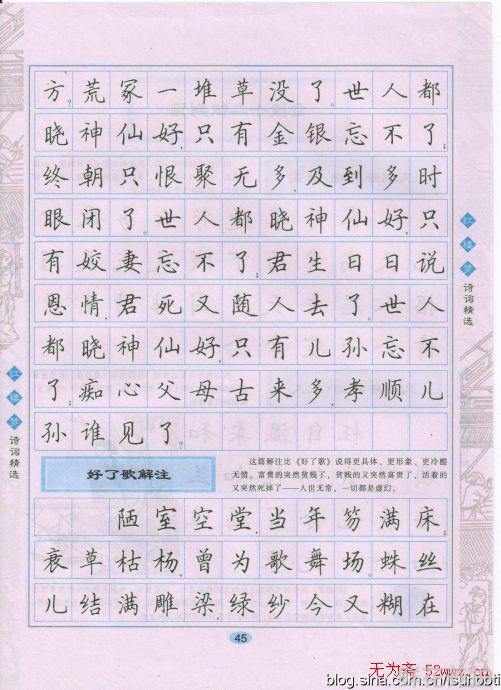 方。荒冢一堆草没了。世人都
晓神仙好,只有金银忘不了;
终朝只恨聚无多,及到多时
眼闭了。世人都晓神仙好,只
有姣妻忘不了;君生日日说
恩情,君死又随人去了。世人
都晓神仙好,只有儿孙忘不
了;痴心父母古来多,孝顺儿
孙谁见了。
好了歌解注
这篇解注比《好了歌》说得更具体、更形象、更冷酷
无情。富贵的突然贫贱了,贫贱的又突然富贵了,活着的
又突然死掉了——人世无常,一切都是虚幻。
陋室空堂,当年笏满床;
衰草枯杨,曾为歌舞场。蛛丝
儿结满雕梁,绿纱今又糊在
45
红楼梦诗词精选
红楼梦诗词精选
无为斋 52wwz.cn